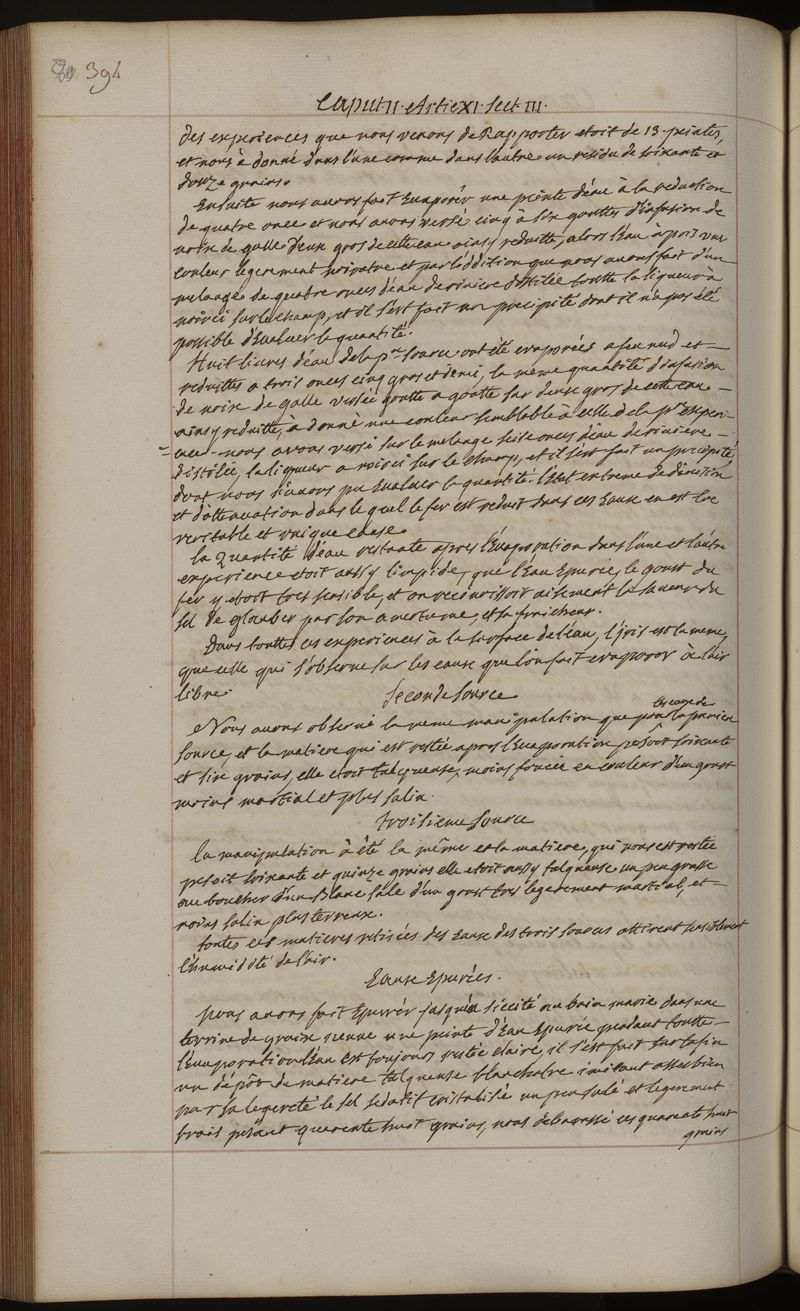 394
Caput II. Artic XI. Sect. III.
des experiences que nous venons de Rapporter etoit de 13 peintes,
et nous à donné dans l'une comme dans l'autre un residu de soixante et
douze grains.
Ensuite nous avons fait Evaporér une peinte d'eau à la reduction
de quatre once et nous avons versé cinq à six gouttes d'infusion de
noix de galle deux gros de cette eau ainsy reduitte, alors l'eau à pris une
couleur légerement noiratre et par l'addition que nous avons fait d'un
melange de quatre onces d'eau de riviere distilée toutte la liqueur à
noirci sur le champ, et il s'est fait un precipité dont il n'a pas été
possible d'Evaluer la quantité.
Huit livres d'eau de la pre source ont été evaporées a feu nud et
reduittes a trois onces cinq gros et demi, la même quantité d'infusion
de noix de galle versée goutte a goutte sur deux gros de cette eau
ainsy reduitte, à donné une couleur semblable à celle de la pre experi-
= ence. nous avons versé sur le melange seise onces d'eau de riviere
distilée, la liqueur a noirci sur le champ, et il s'est fait un precipité
dont nous n'avons pu Evaluer la quantité. l'Etat extreme de division
et d'attenuation dans le quel le fer est reduit dans ces Eaux en est la
veritable et unique cause.
la Quantité d'eau restante apres l'Evaporation dans l'une et l'autre
experience etoit aussy limpide, que l'Eau Epurée, le goust du
fer y etoit tres sensible, et on reconnoissoit aisement la saveur du
sel de glauber par son amertume, et sa fraicheur.
Dans touttes ces experiences à la surface de l'eau, l'iris est la meme,
que celle qui s'observe sur les eaux que l'on fait evaporer à l'air
libre.
Seconde Source
Nous avons observé la meme manipulation que pour la premiere
source, et la matiere qui est restée apres l'Evaporation pesoit soixante
et six grains, elle etoit talqueuse, moins foncée en couleur d'un goust
moins martial et plus salin.
troisieme Source
la manipulation à été la même et la matiere, qui nous est restée
pesoit soixante et quinze grains elle etoit aussy talqueuse un peu grasse
au toucher d'un Blanc sale d'un goust tres legerement martial, et
moins salin plus terreux.
touttes ces matieres retirées des Eaux des trois sources attirent sensiblement
l'humidité de l'air.
Eaux Epurées.
Nous avons fait Epurér jusqu'à siccité au bain marie dans une
terrine de graix neuve une peinte d'Eau Epurée pendant toutte
l'Evaporation l'eau est toujours restée claire, il s'est fait sur la fin
un dépôt de matiere talqueuse blanchatre imitant asses bien
par sa legereté le sel sedatif cristalisé un peu salé et legerement
frais pesant quarente huit grains, nous debarassé ces quarante huit
grains